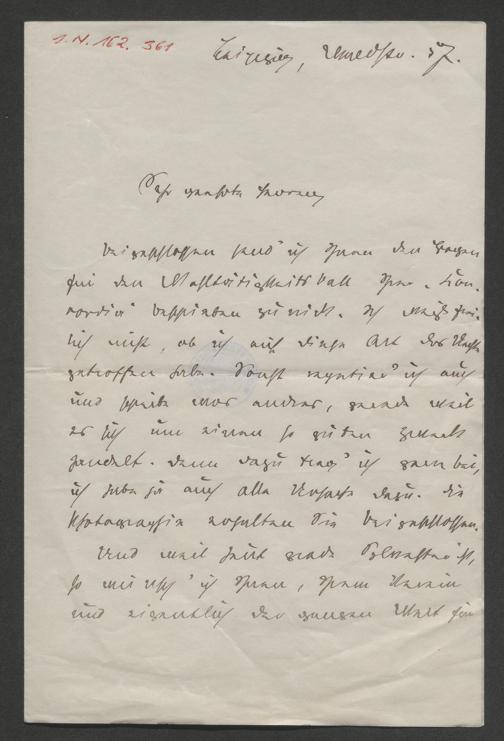 I.N. 162.361
Leipzig,
Sehr geehrte Herren,
beigeschlossen send' ich Ihnen den Bogen
für den Wohltätigkeits Ball Ihrer
beschrieben zurück. Ich weiß frei-
lich nicht, ob ich auf diese Art das Rechte
getroffen habe. Sonst ich auch
und schreibe was andres, gerade weil
es sich um einen so guten Zweck
handelt. Denn dazu trag' ich gern bei,
ich habe ja auch alle Ursache dazu. Die
Photographie erhalten Sie beigeschlossen.
Und weil heut grade Sylvester ist,
so wünsch' ich Ihnen, Ihrem Verein
und eigentlich der ganzen Welt ein